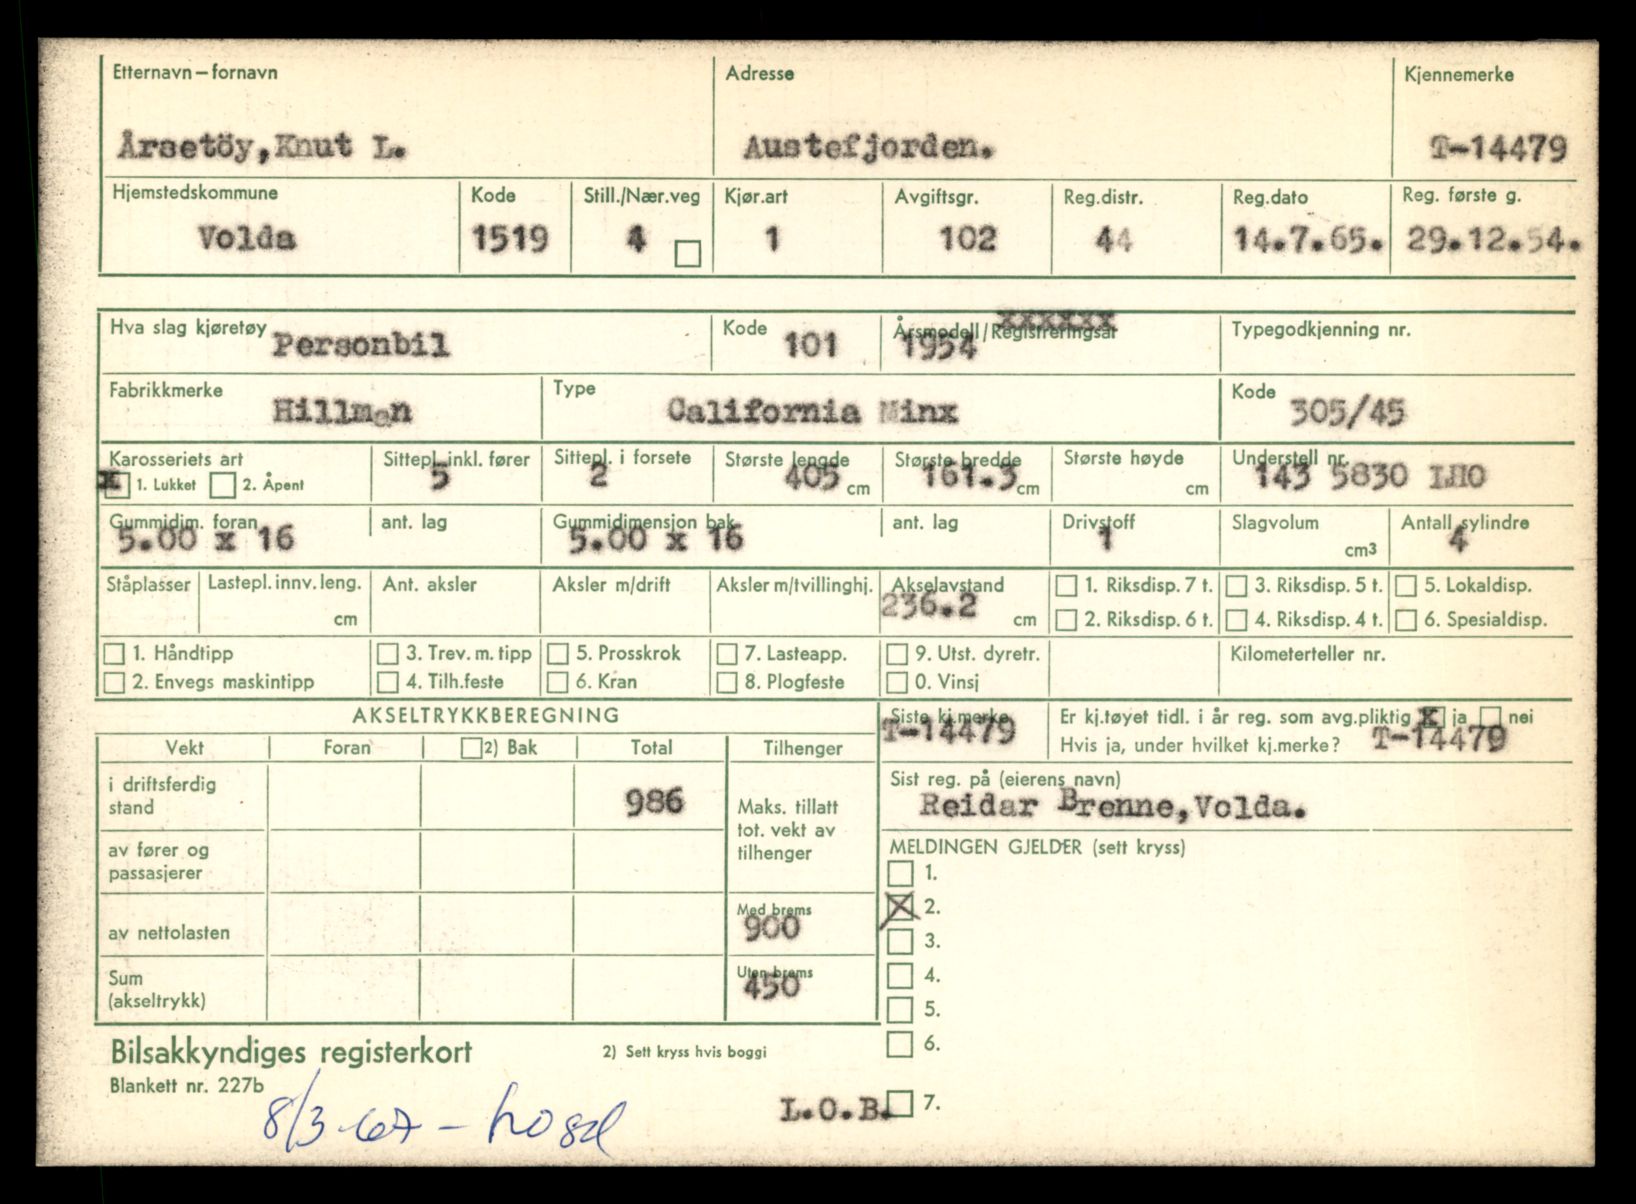 Etternavn – fornavn Adresse Kjennemerke
Årsetöy, Knut L. Austefjorden. T-14479
Hjemstedskommune Kode Still./Nær.veg Kjør.art Avgiftsgr. Reg.distr. Reg.dato Reg. første g.
Volda 1519 4 1 102 44 14.7.65. 29.12.54.
Hva slag kjøretøy Personbil Kode 101 Årsmodell/Registreringsår xxxxxx 1954 Typegodkjenning nr.
Fabrikkmerke Hillman Type California Minx Kode 305/45
Karosseriets art Sittepl. inkl. fører Sittepl. i forsete Største lengde Største bredde Største høyde Understell nr.
x 1. Lukket 2. Åpent 5 2 405 cm 161.3 cm cm 143 5830 LHO
Gummidim. foran ant. lag Gummidimensjon bak ant. lag Drivstoff Slagvolum Antall sylindre
5.00 x 16 5.00 x 16 1 cm3 4
Ståplasser Lastepl. innv. leng. Ant. aksler Aksler m/drift Aksler m/tvillinghj. Akselavstand 1. Riksdisp. 7 t. 3. Riksdisp. 5 t. 5. Lokaldisp.
cm 236.2 cm 2. Riksdisp. 6 t. 4. Riksdisp. 4 t. 6. Spesialdisp.
1. Håndtipp 3. Trev. m. tipp 5. Prosskrok 7. Lasteapp. 9. Utst. dyretr. Kilometerteller nr.
2. Envegs maskintipp 4. Tilh.feste 6. Kran 8. Plogfeste 0. Vinsj
AKSELTRYKKBEREGNING Siste kj.merke Er kj.tøyet tidl. i år reg. som avg.pliktig x ja nei
T-14479 Hvis ja, under hvilket kj.merke? T-14479
Vekt Foran 2) Bak Total Tilhenger
i driftsferdig stand 986 Sist reg. på (eierens navn)
Reidar Brenne, Volda.
Maks. tillatt
tot. vekt av
tilhenger
av fører og
passasjerer
MELDINGEN GJELDER (sett kryss)
1.
2.
3.
4.
5.
6.
7.
av nettolasten Med brems
900
Sum
(akseltrykk) Uten brems
450
Bilsakkyndiges registerkort 2) Sett kryss hvis boggi
Blankett nr. 227b
L.O.B.
8/3-67 -